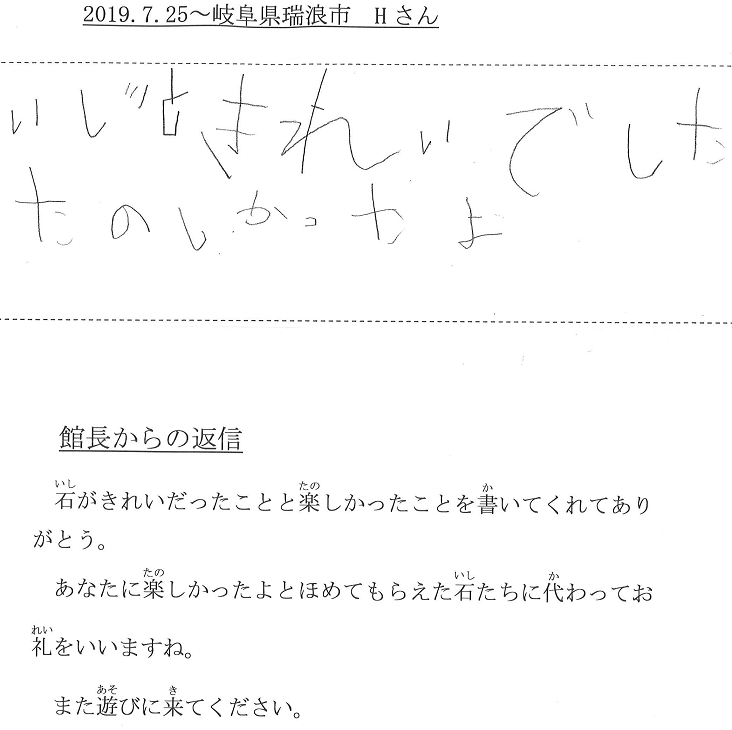 2019.7.25～岐阜県瑞浪市　Hさん
いし きれいでした
たのしかったよ
館長からの返信
いし たの か
石がきれいだったことと楽しかったことを書いてくれてあり
がとう。
たの いし か
あなたに楽しかったよとほめてもらえた石たちに代わってお
れい
礼をいいますね。
あそ き
また遊びに来てください。